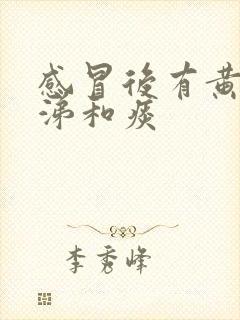 感冒後有黃
涕和痰
李秀峰